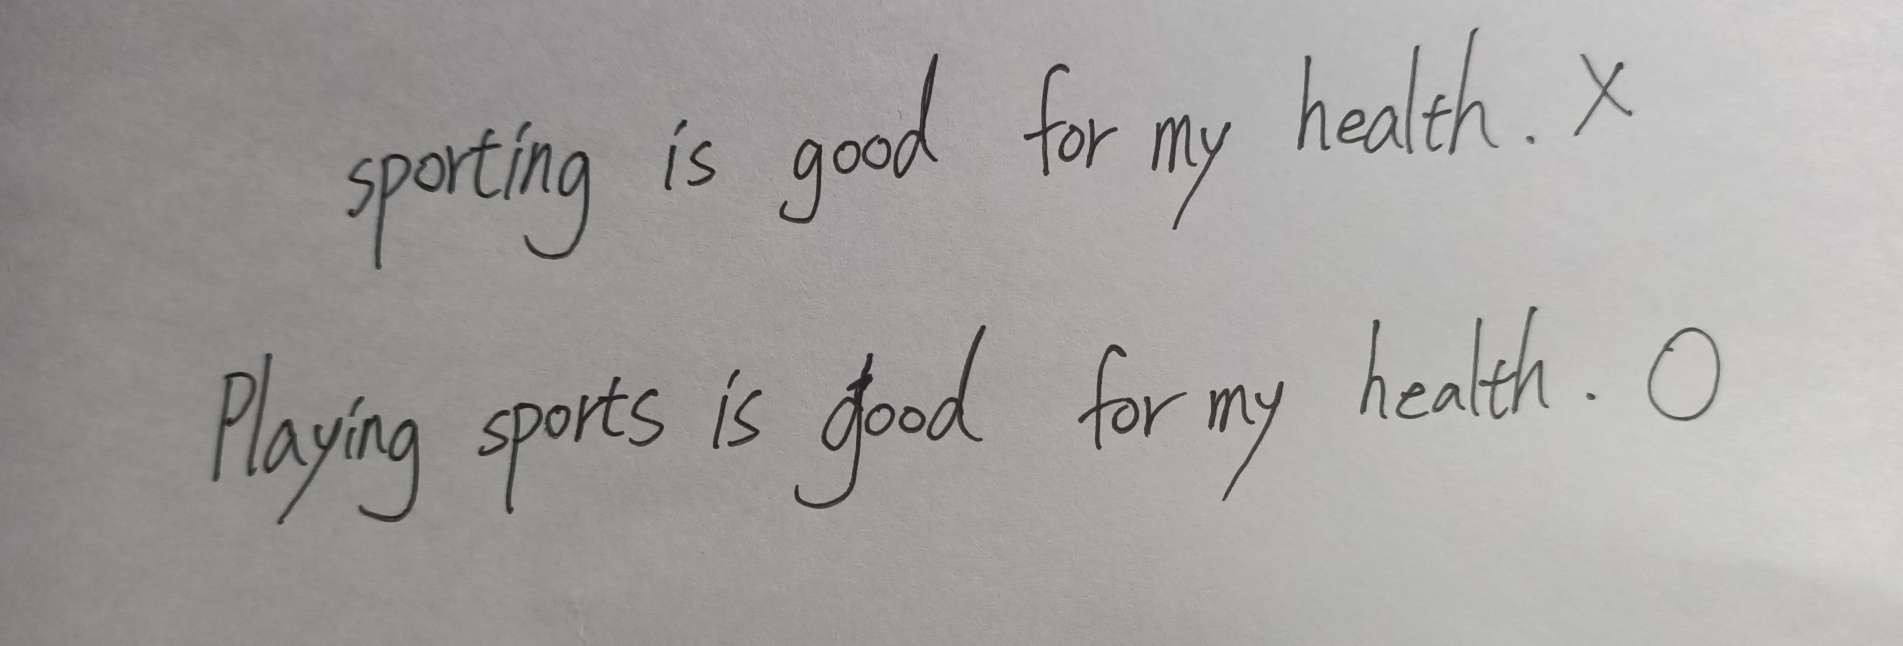 sporting is good for my health. X
Playing sports is good for my health. O